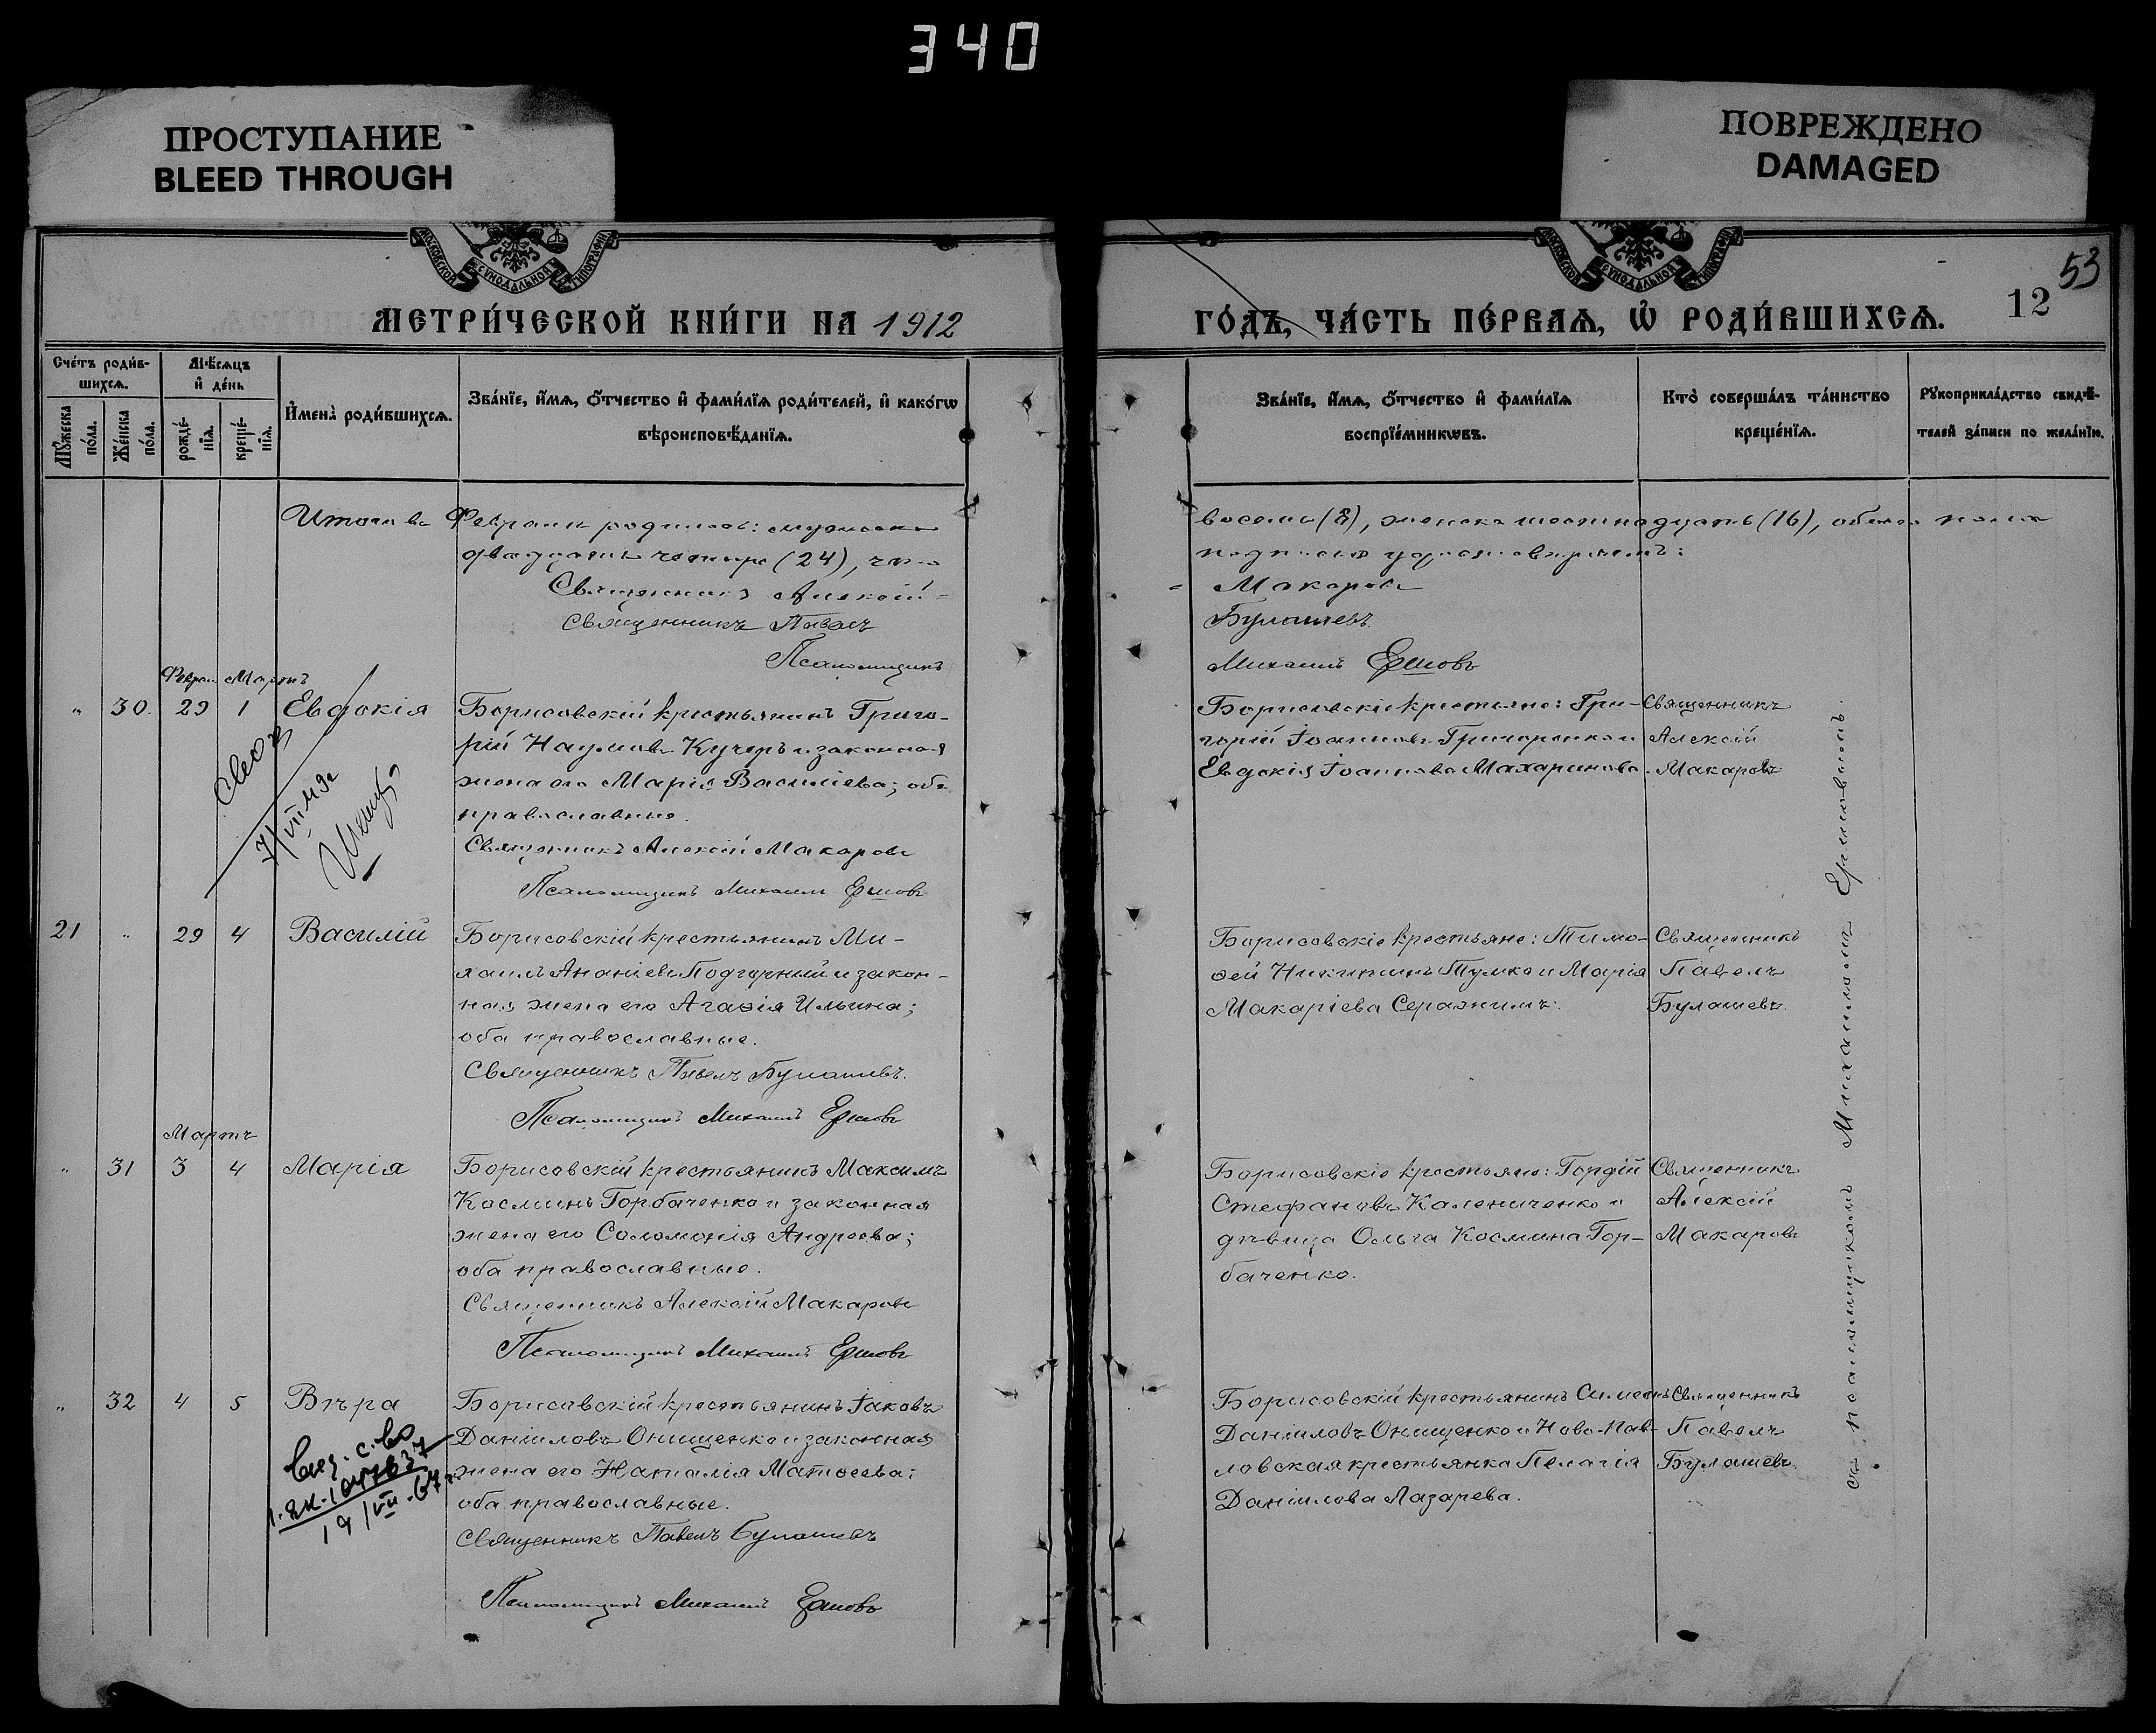 340
ПРОСТУПАНИЕ
BLEED THROUGH
ПОВРЕЖДЕНО
DAMAGED
МОСКОВСКОЙ СѴНОДАЛЬНОЙ ТИПОГРАФІИ
МОСКОВСКОЙ СѴНОДАЛЬНОЙ ТИПОГРАФІИ
53
12
МЕТРИ́ЧЕСКОЙ КНИ́ГИ НА 1912
ГО́ДЪ, ЧА́СТЬ ПЕ́РВАѦ, Ѡ҆ РОДИ́ВШИХСѦ.
Сче́тъ роди́в-
шихсѧ.
Мꙋ́жеска по́ла.
Же́нска по́ла.
Мѣ́сѧцъ
и҆ де́нь
рожде́-
нїѧ.
креще́-
нїѧ.
И҆мена̀ роди́вшихсѧ.
Зва́нїе, и҆́мѧ, ѻ҆́тчество и҆ фами́лїѧ роди́телей, и҆ како́гѡ
вѣроисповѣ́данїѧ.
Зва́нїе, и҆́мѧ, ѻ҆́тчество и҆ фами́лїѧ
воспрїе́мникѡвъ.
Кто̀ соверша́лъ та́инство
креще́нїѧ.
Рꙋкоприкла́дство свидѣ́-
телей за́писи по жела́нїю.
Итого въ Февралѣ родилось: мужеска
двадцать четыре (24), что
Священникъ Алексій
Священникъ Павелъ
Псаломщикъ
восемь (8), женска шестнадцать (16), обоего пола
подписью удостовѣряемъ:
Макаровъ
Булашевъ.
Михаилъ Ершовъ
Февр. Мартъ
" 30. 29 1 Евдокія
Борисовскій крестьянинъ Григо-
рій Наумовъ Кучеръ и законная
жена его Марія Василіева; оба
православные.
Священникъ Алексій Макаровъ
Псаломщикъ Михаилъ Ершовъ
Борисовскіе крестьяне: Гри-
горій Іоанновъ Григоренко и
Евдокія Іоаннова Махаринова.
Священникъ
Алексій
Макаровъ
21 " 29 4 Василій
Борисовскій крестьянинъ Ми-
хаилъ Ананіевъ Подгорный и закон-
ная жена его Агаѳія Ильина;
оба православные.
Священникъ Павелъ Булашевъ.
Псаломщикъ Михаилъ Ершовъ
Борисовскіе крестьяне: Тимо-
ѳей Никитинъ Тумко и Марія
Макаріева Серажимъ.
Священникъ
Павелъ
Булашевъ.
Мартъ
" 31 3 4 Марія
Борисовскій крестьянинъ Максимъ
Косминъ Горбаченко и законная
жена его Соломонія Андреева;
оба православные.
Священникъ Алексій Макаровъ
Псаломщикъ Михаилъ Ершовъ
Борисовскіе крестьяне: Гордій
Стефановъ Калениченко и
дѣвица Ольга Космина Гор-
баченко.
Священникъ
Алексій
Макаровъ
" 32 4 5 Вѣра
Борисовскій крестьянинъ Іаковъ
Даніиловъ Онищенко и законная
жена его Наталія Матѳеева;
оба православные.
Священникъ Павелъ Булашевъ
Псаломщикъ Михаилъ Ершовъ
Борисовскій крестьянинъ Симеонъ
Даніиловъ Онищенко и Ново-Пав-
ловская крестьянка Пелагія
Даніилова Лазарева.
Священникъ
Павелъ
Булашевъ.
съ псаломщикомъ Михаиломъ Ершовымъ.